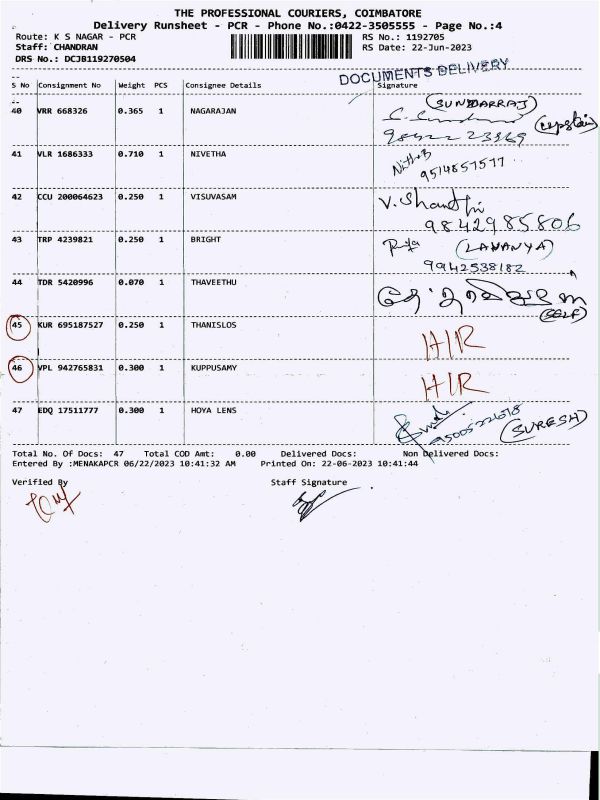 THE PROFESSIONAL COURIERS, COIMBATORE
Delivery Runsheet - PCR - Phone No.:0422-3505555 - Page No.:4
Route: K S NAGAR - PCR RS No.: 1192705
Staff: CHANDRAN RS Date: 22-Jun-2023
DRS No.: DCJB119270504
DOCUMENTS DELIVERY
S No Consignment No Weight PCS Consignee Details Signature
40 VRR 668326 0.365 1 NAGARAJAN (SUNDARRAJ)
41 VLR 1686333 0.710 1 NIVETHA
42 CCU 200064623 0.250 1 VISUVASAM V. Shanthi
9842985806
43 TRP 4239821 0.250 1 BRIGHT (LAVANYA)
9942538182
44 TDR 5420996 0.070 1 THAVEETHU
(SELF)
45 KUR 695187527 0.250 1 THANISLOS H/R
46 VPL 942765831 0.300 1 KUPPUSAMY H/R
47 EDQ 17511777 0.300 1 HOYA LENS (SURESH)
Total No. Of Docs: 47 Total COD Amt: 0.00 Delivered Docs: Non Delivered Docs:
Entered By :MENAKAPCR 06/22/2023 10:41:32 AM Printed On: 22-06-2023 10:41:44
Verified By Staff Signature